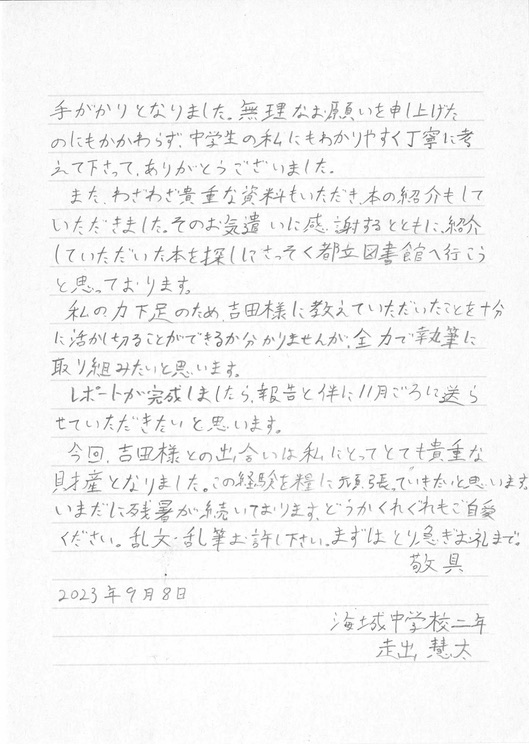 手がかりとなりました。無理なお願いを申し上げた
のにもかかわらず、中学生の私にもわかりやすく丁寧に考
えて下さって、ありがとうございました。
また、わざわざ貴重な資料もいただき、本の紹介もして
いただきました。そのお気遣いに感謝するとともに、紹介
していただいた本を探しにさっそく都立図書館へ行こう
と思っております。
私の力不足のため、吉田様に教えていただいたことを十分
に活かし切ることができるか分かりませんが、全力で執筆に
取り組みたいと思います。
レポートが完成しましたら、報告と伴に11月ごろに送ら
せていただきたいと思います。
今回、吉田様との出会いは私にとってとても貴重な
財産となりました。この経験を糧に頑張っていきたいと思います。
いまだに残暑が続いております、どうかくれぐれもご自愛
ください。乱文・乱筆お許し下さい。まずはとり急ぎお礼まで。
敬具
2023年9月8日
海城中学校二年
走出 慧太